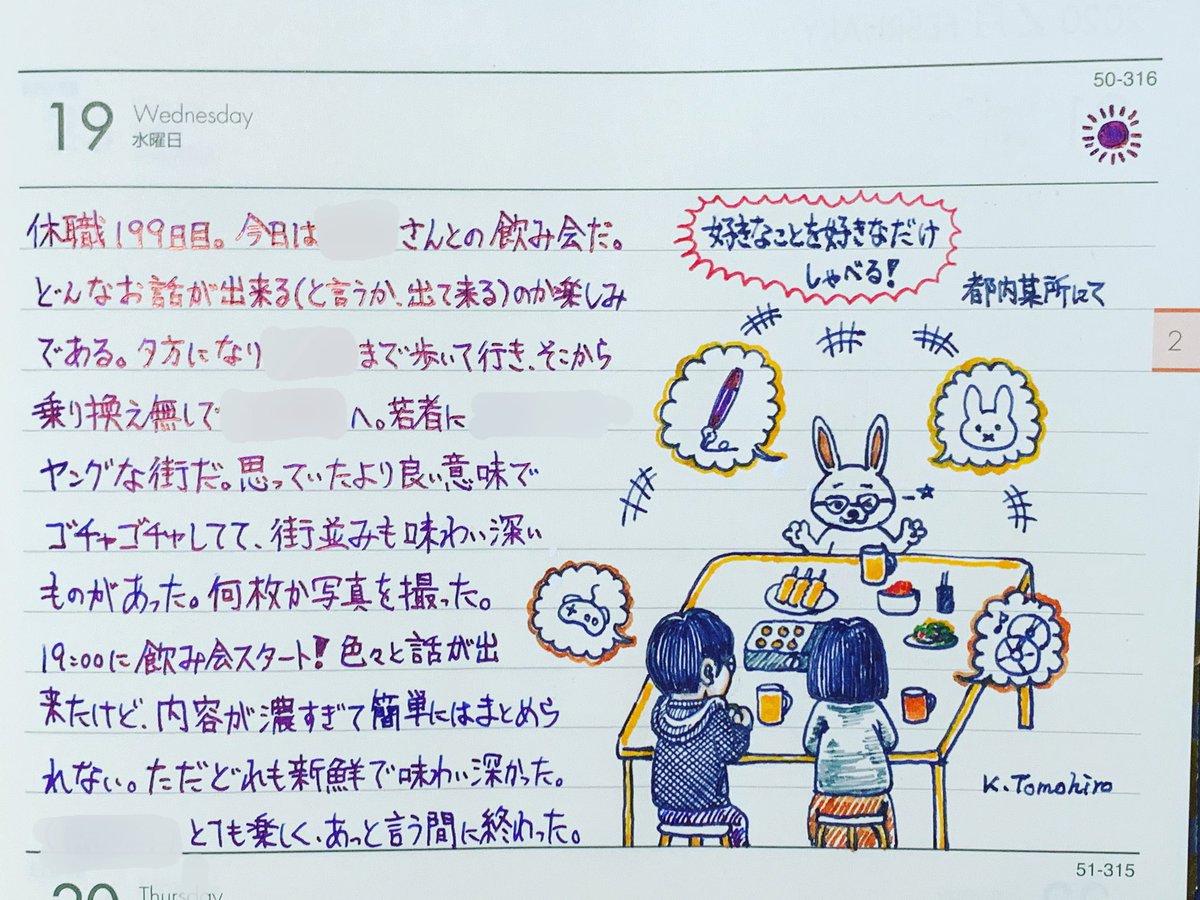 19 Wednesday
水曜日
50-316
休職199日目。今日は さんとの飲み会だ。
どんなお話が出来る(と言うか、出て来る)のか楽しみ
である。夕方になり までで歩いて行き、そこから
乗り換え無しで へ。若者に
ヤングな街だ。思っていたより良い意味で
ゴチャゴチャしてて、街並みも味わい深い
ものがあった。何枚か写真を撮った。
19:00に飲み会スタート!色々と話が出
来たけど、内容が濃すぎて簡単にはまとめら
れない。ただどれも新鮮で味わい深かった。
とても楽しく、あっと言う間に終わった。
好きなことを好きなだけ
しゃべる!
都内某所にて
2
K.Tomohiro
51-315
20 Thursday